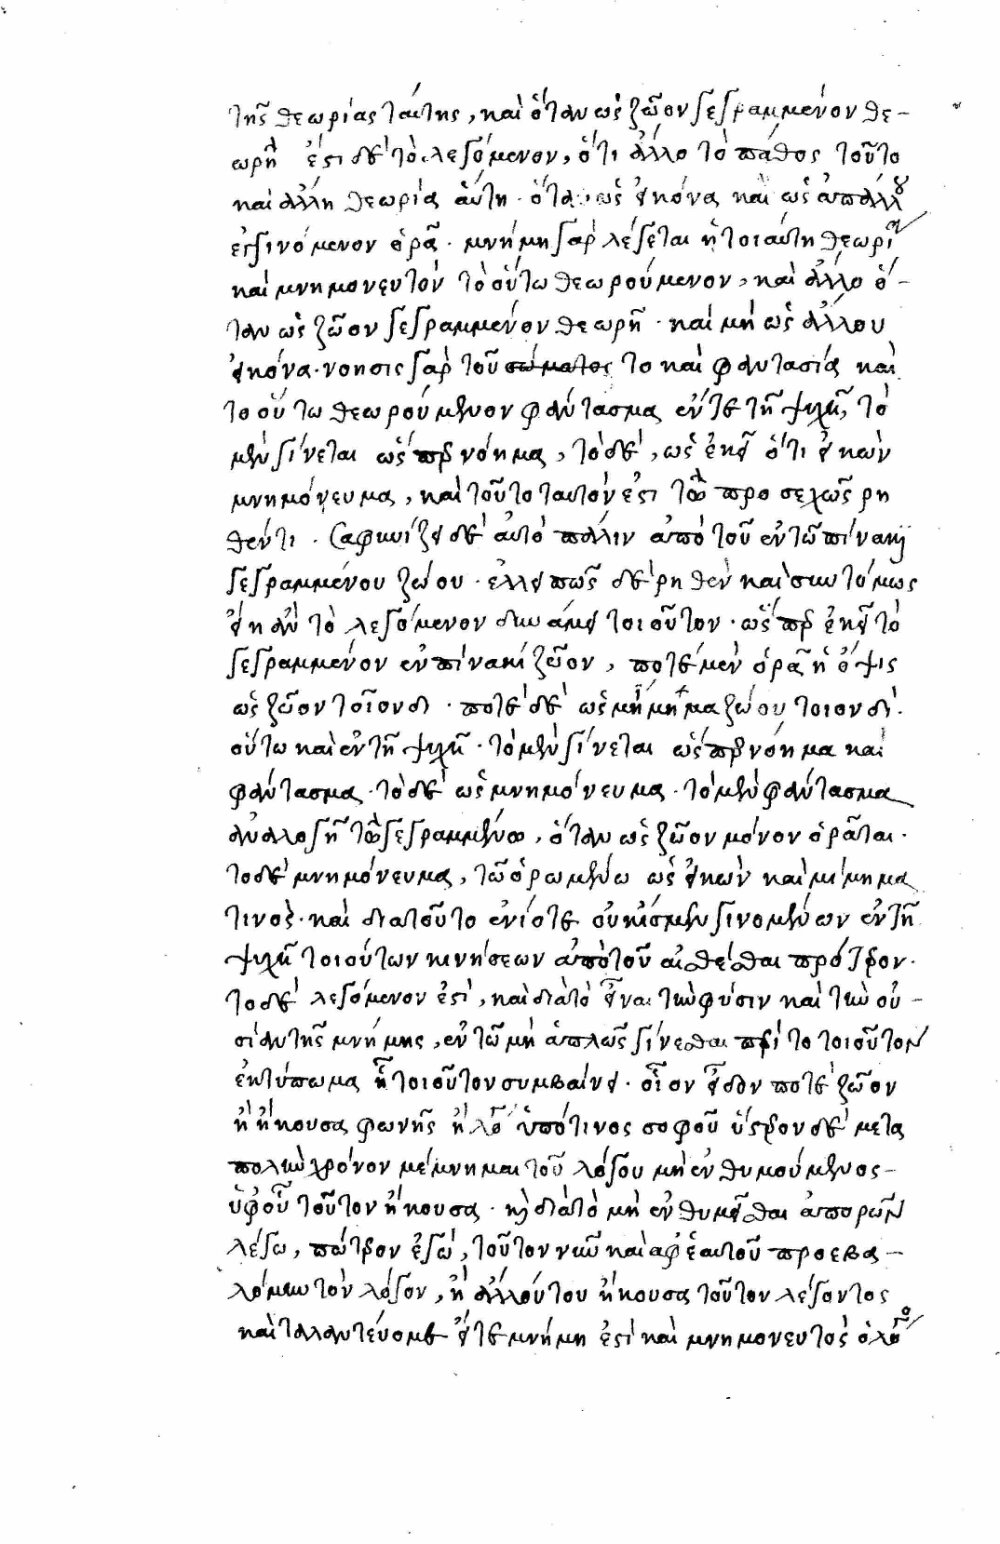 τῆς θεωρίας ταύτης, καὶ ὅταν ὡς ζῶον γεγραμμένον θε-
ωρῆ ἔστι δὲ τὸ λεγόμενον, ὅτι ἄλλο τὸ πάθος τοῦτο
καὶ ἄλλη θεωρία αὕτη· ὅταν ὡς εἰκόνα καὶ ὡς ἀπ' ἄλλου
ἐγγινόμενον ὁρᾶ· μνήμη γὰρ λέγεται ἡ τοιαύτη θεωρία
καὶ μνημονευτὸν τὸ οὕτω θεωρούμενον, καὶ ἄλλο ὅ-
ταν ὡς ζῶον γεγραμμένον θεωρῆ· καὶ μὴ ὡς ἄλλου
εἰκόνα· νόησις γὰρ τοῦτο καὶ φαντασία καὶ
τὸ οὕτω θεωρούμενον φάντασμα ἔν τε τῆ ψυχῆ, τὸ
μὲν γίνεται ὥσπερ νόημα, τὸ δὲ, ὡς ἐκεῖ ὅτι εἰκὼν
μνημόνευμα, καὶ τοῦτο ταυτόν ἐστι τῶ προσεχῶς ρη
θέντι. Σαφηνίζει δὲ αὐτὸ πάλιν ἀπὸ τοῦ ἐν τῶ πίνακι
γεγραμμένου ζώου· ἐλλειπῶς δὲ ρηθὲν καὶ συντόμως
εἴη ἂν τὸ λεγόμενον δυνάμει τοιοῦτον· ὥσπερ ἐκεῖ τὸ
γεγραμμένον ἐν πίνακι ζῶον, ποτὲ μὲν ὁρᾶ ἡ ὄψις
ὡς ζῶον τοιονδί· ποτὲ δὲ ὡς μίμημα ζώου τοιονδί.
οὕτω καὶ ἐν τῆ ψυχῆ· τὸ μὲν γίνεται ὥσπερ νόημα καὶ
φάντασμα· τὸ δὲ ὡς μνημόνευμα· τὸ μὲν φάντασμα
ἀναλογῆ τῶ γεγραμμένω, ὅταν ὡς ζῶον μόνον ὁρᾶται·
τὸ δὲ μνημόνευμα, τῶ ὁρωμένω ὡς εἰκὼν καὶ μίμημα
τινός· καὶ διατοῦτο ἐνίοτε οὐκ ἴσμεν γινομένων ἐν τῆ
ψυχῆ τοιούτων κινήσεων ἀπὸ τοῦ αἰσθέσθαι πρότερον.
τὸ δὲ λεγόμενον ἐστὶ, καὶ διὰ τὸ εἶναι τὴν φύσιν καὶ τὴν οὐ-
σίαν τῆς μνήμης, ἐν τῶ μὴ ἁπλῶς γίνεσθαι περὶ τὸ τοιοῦτον
ἐκτύπωμα ἢ τοιοῦτον συμβαίνει· οἷον εἶδον ποτὲ ζῶον
ἢ ἤκουσα φωνῆς ἢ λόγου ὑπό τινος σοφοῦ ὕστερον δὲ μετα
πολὺν χρόνον μέμνημαι τοῦ λόγου μὴ ἐνθυμούμενος-
ὑφ' οὗ τοῦτον ἤκουσα· καὶ διὰ τὸ μὴ ἐνθυμεῖσθαι ἀπορῶν
λέγω, πότερον ἐγὼ, τοῦτον νῦν καὶ ἀφ' ἑαυτοῦ προεβα-
λόμην τὸν λόγον, ἢ ἄλλού του ἤκουσα τοῦτον λέγοντος
καὶ ταλαντεύομαι εἴτε μνήμη ἐστὶ καὶ μνημονευτὸς ὁ λόγος